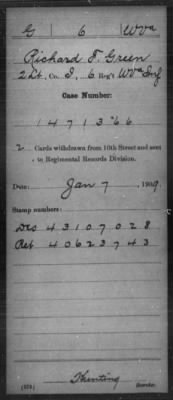 G 6 WVa
Richard T. Green
2 Lt., Co. I, 6 Reg't WVa Inf
Case Number:
1 4 7 1 3 66
2 Cards withdrawn from 10th Street and sent
to Regimental Records Division.
Date: Jan 7, 1909.
Stamp numbers:
Des 4 3 1 0 7 0 2 8
Ret 4 0 6 2 3 7 4 3
Hunting